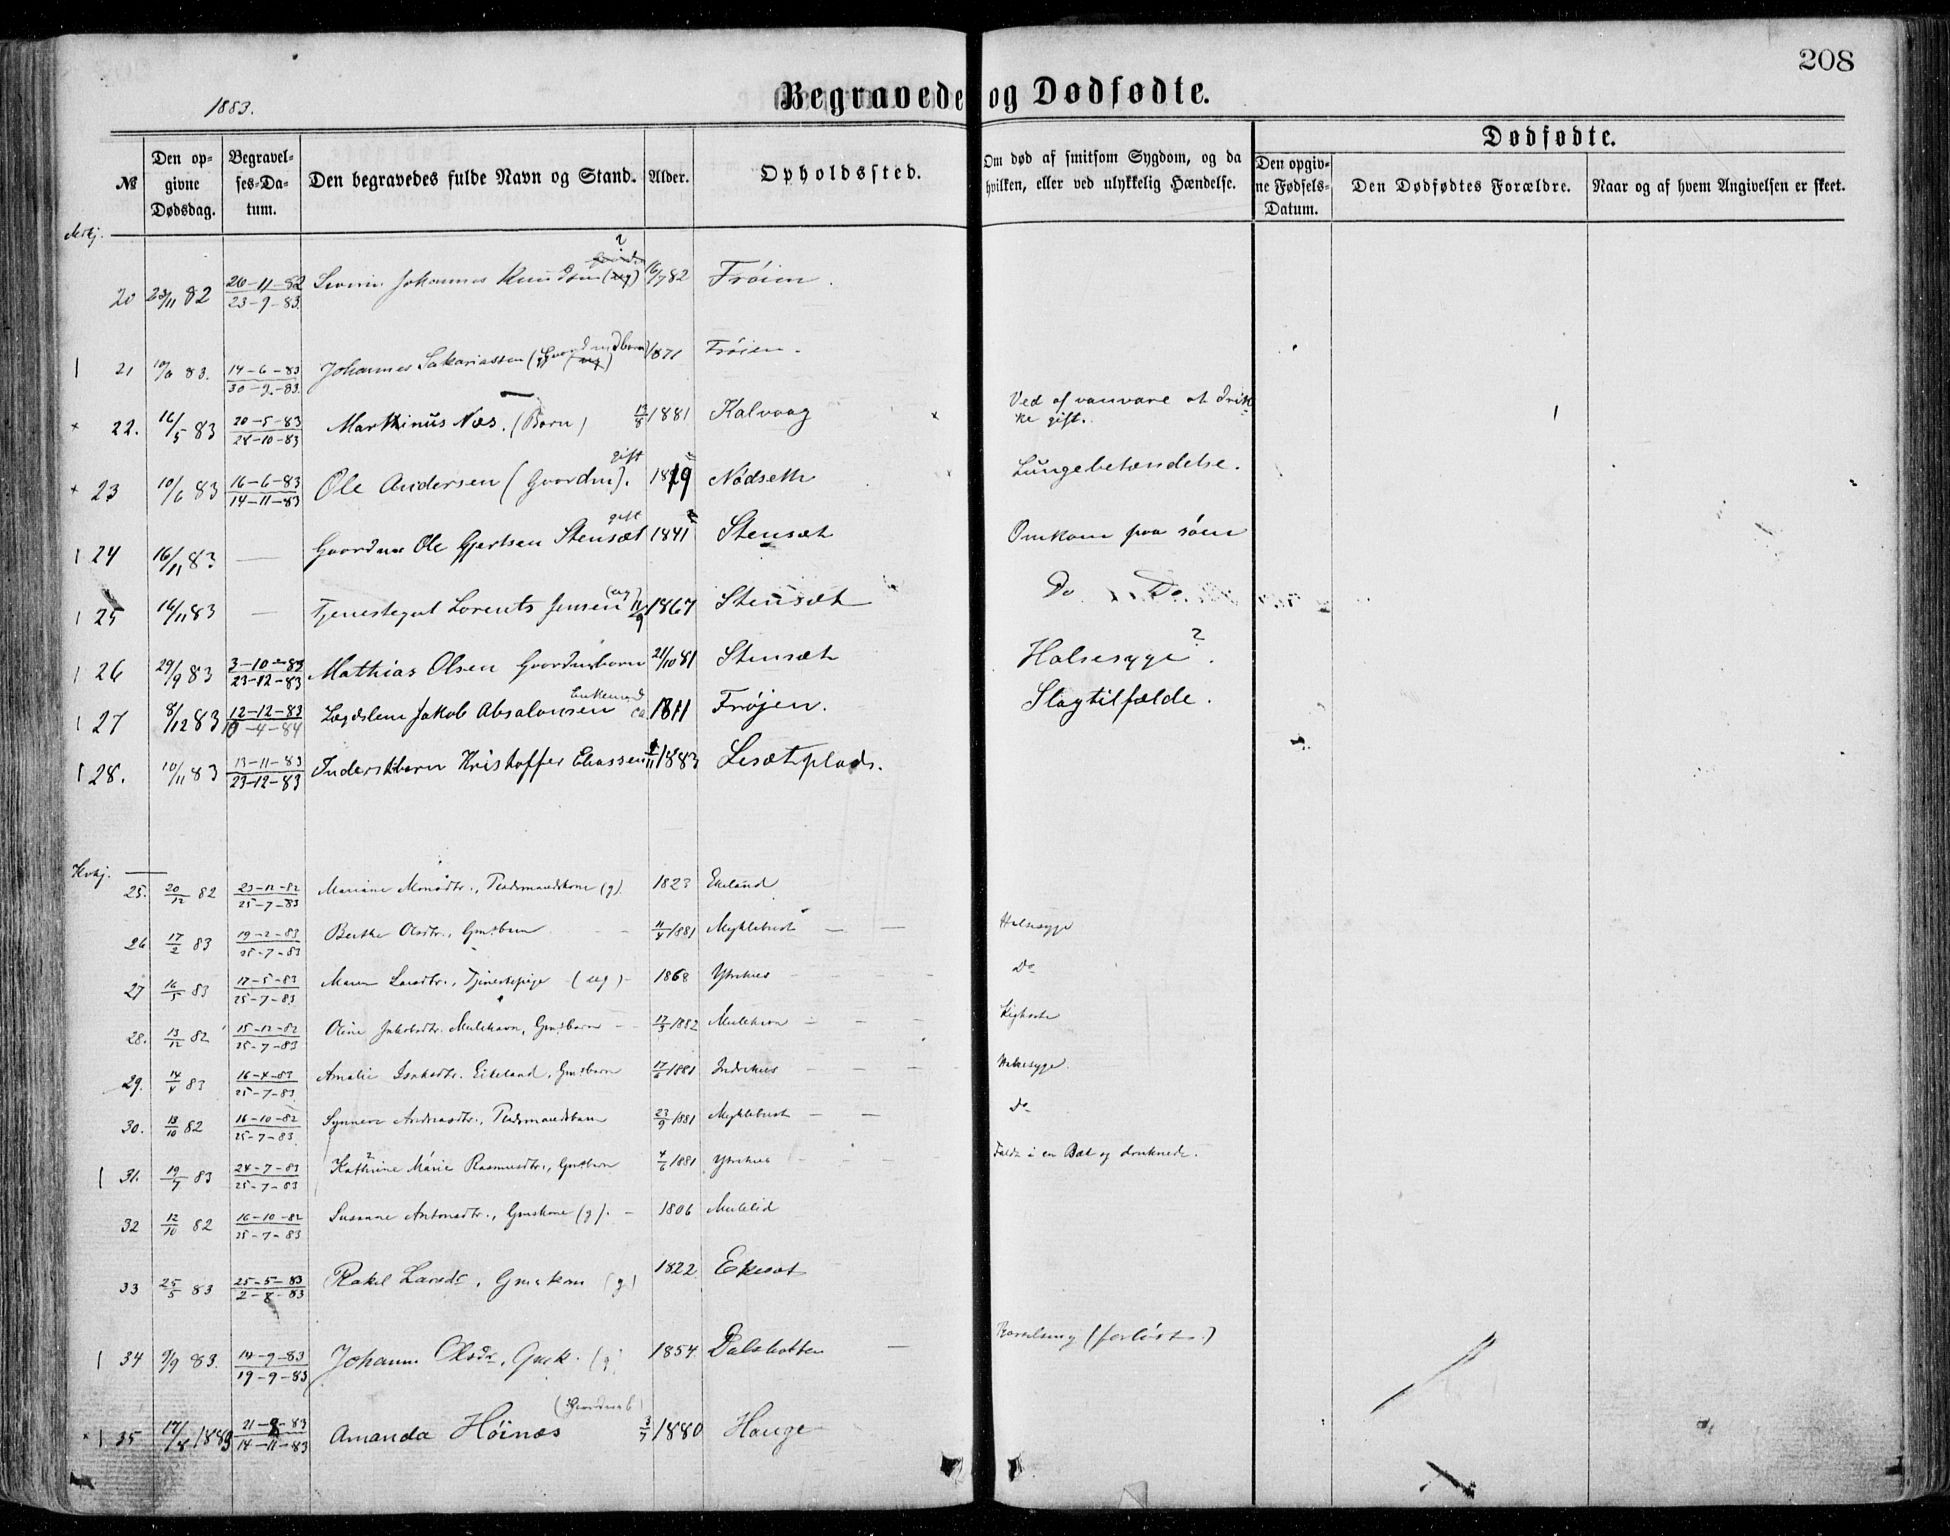 208
1883.
Begravede og Dødfødte.
№
Den opgivne Dødsdag.
Begravelses-Datum.
Den begravedes fulde Navn og Stand.
Alder.
Opholdssted.
Om død af smitsom Sygdom, og da hvilken, eller ved ulykkelig Hændelse.
Dødfødte.
Den opgivne Fødsels-Datum.
Den Dødfødtes Forældre.
Naar og af hvem Angivelsen er skeet.
20 23/11 82 20-11-82 23-9-83 Severin Johannes Knudsen 16/7 82 Frøien.
21 83. 14-6-83 30-9-83 Johannes Sakariassen 1871 Frøien.
22. 16/5 83 20-5-83 28-10-83 Marthinus Næs. (Barn) 13/8 1881 Kalvaag Ved af vanvare at drikke gift.
23 10/6 83 16-6-83 14-11-83 Ole Andersen (Gaardm). gift Nødseth Lungebetændelse.
24 16/11 83 — Gaardm Ole Gjertsen Stensæt gift 1841 Stensæt Omkom paa søen
25 16/11 83 — Tjenestegut Lorents Jensen (ug) 11/9 1867 Stensæt Do Do
26 29/9 83 3-10-83 23-12-83 Mathias Olsen Gaardmsbarn 21/10 81 Stensæt Halsesyge ?
27 8/12 83 12-12-83 -4-84 Lægdslem Jakob Absalonsen Enkemand ca 1811 Frøjen. Slagtilfælde.
28. 10/11 83 13-11-83 23-12-83 Inderstbarn Kristoffer Eliassen 1883 Lesætplads.
Kvkj.
25. 20/12 82 23-12-82 25-7-83 Mariane Monsdtr., Pladsmandskone (g) 1823 Ekeland
26 17/2 83 19-2-83 25-7-83 Berthe Olsdtr., Gmsbarn 11/4 1881 Myklebust — — Halsesyge
27 16/5 83 17-5-83 25-7-83 Maren Larsdtr., Tjenestepige (ug) 1868 Ytrehus Do
28. 13/12 82 15-12-82 25-7-83 Oline Jakobsdtr. Mulehavn, Gmsbarn 17/3 1882 Mulehavn Kighoste
29. 14/4 83 16-4-83 25-7-83 Amalie Isaksdtr. Eikeland, Gmsbarn 17/6 1881 Indrehus Halsesyge.
30. 13/10 82 16-10-82 25-7-83 Synneve Andreasdtr., Pladsmandsbarn 23/9 1881 Myklebust — — Do
31. 19/7 83 24-7-83 25-7-83 Kathrine Marie Rasmusdtr., Gmsbarn 4/6 1881 Ytrehus Faldt i en Bæk og druknede.
32 12/10 82 16-10-82 25-7-83 Susanne Antonsdtr., Gmskone (g). 1806 Mulelid
33 25/5 83 25-5-83 2-8-83 Rakel Larsdt, Gmskone (g) 1822 Ekesæt
34 9/9 83. 14-9-83 19-9-83 Johanne Olsdt, Gmk. (g) 1854 Dalsbotten — Barselseng (forløst.)
35 17/8 1883 14-11-83 Amanda Høinæs (Gaardmsb) 3/7 1880 Hauge